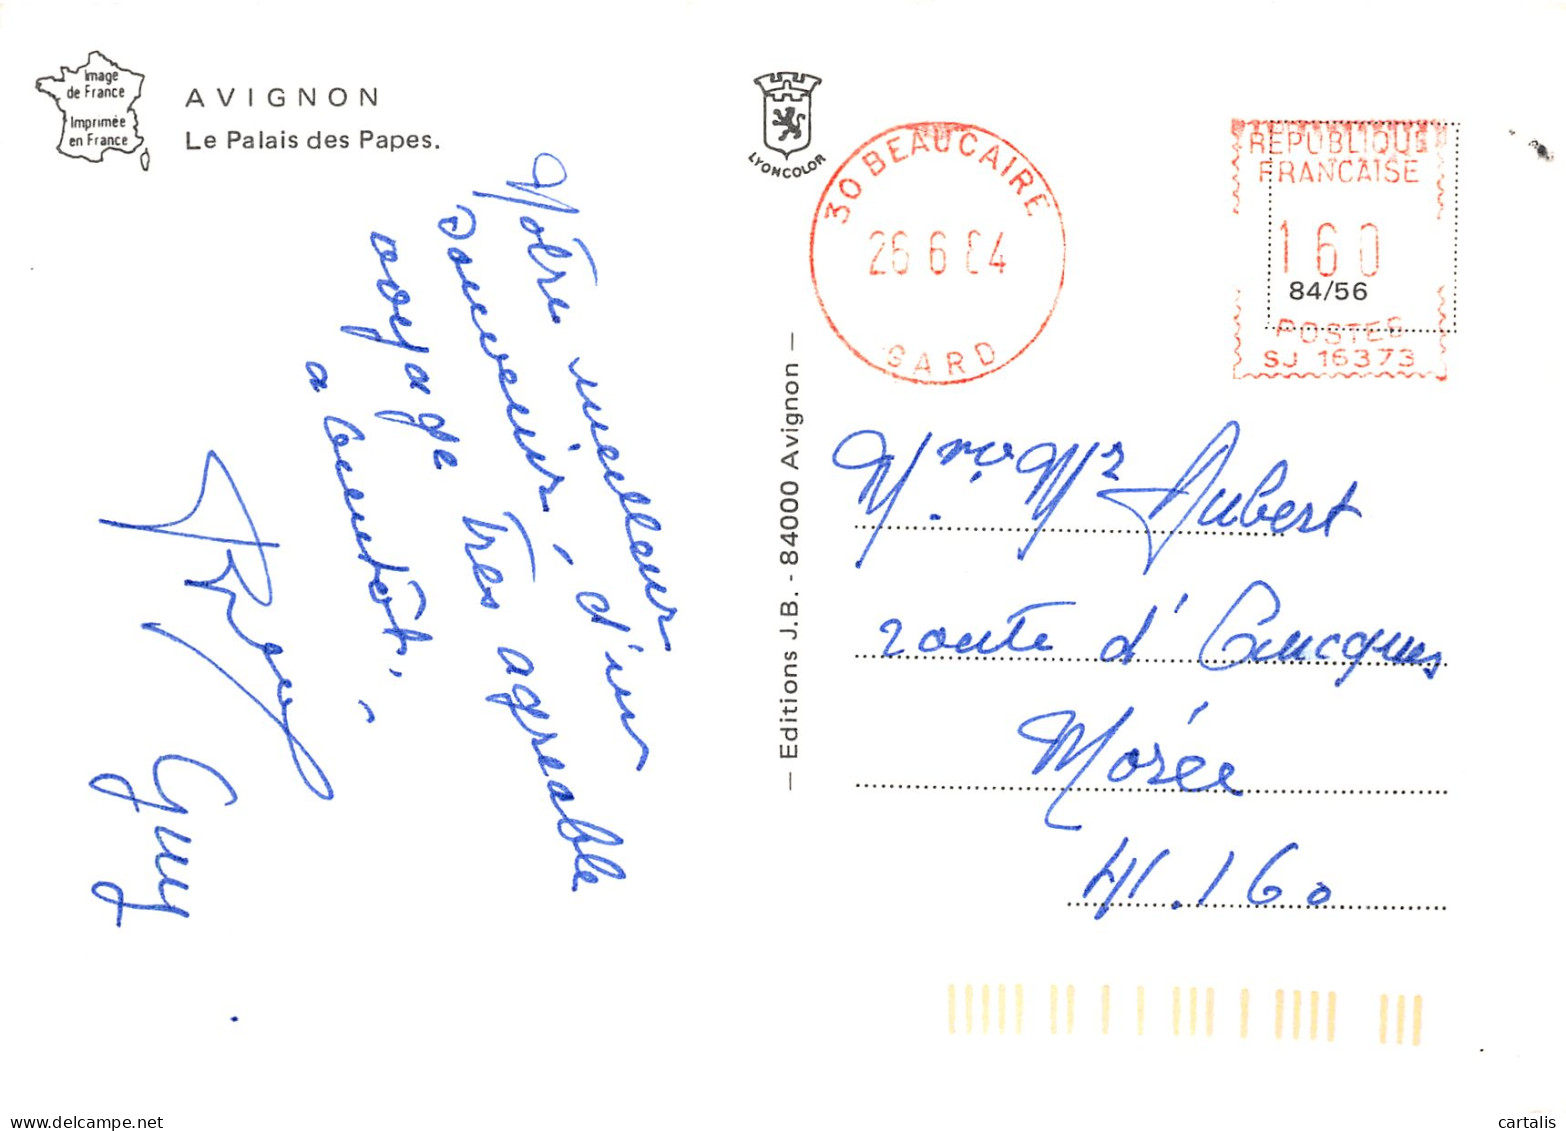 Image
de France
Imprimée
en France
AVIGNON
Le Palais des Papes.
Nôtre meilleur
Souvenir, d'un
voyage très agréable
a bientôt,
Guy
LYONCOLOR
— Editions J.B. - 84000 Avignon —
30 BEAUCAIRE
26 6 84
GARD
REPUBLIQUE
FRANCAISE
160
84/56
POSTES
SJ 16373
Mme Mr Aubert
route d'
Morée
41.160
delcampe.net
cartalis